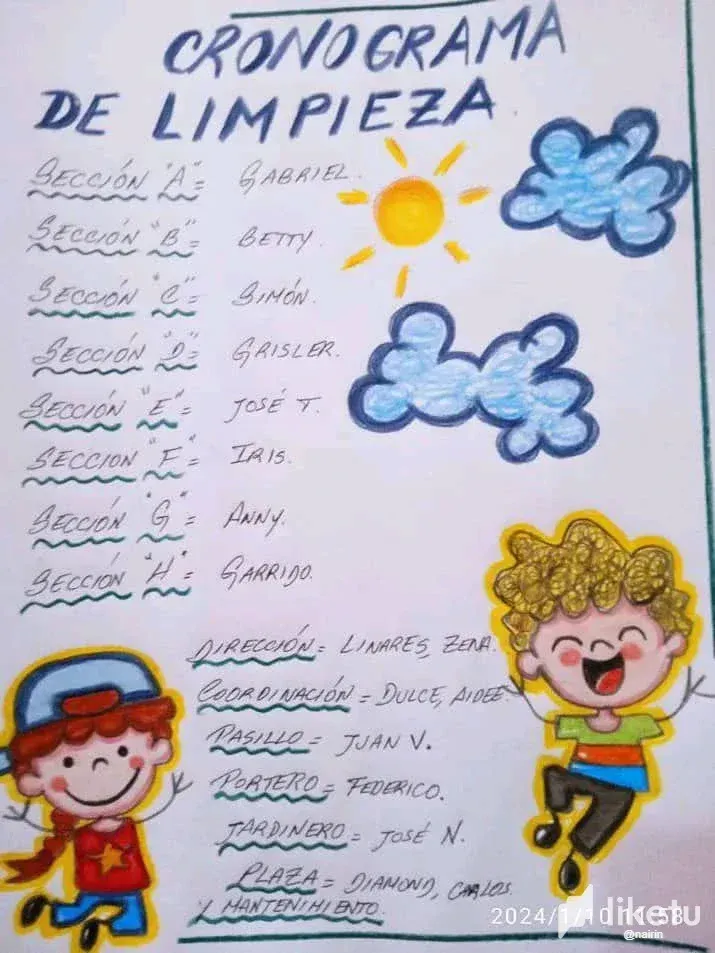 CRONOGRAMA
DE LIMPIEZA
SECCIÓN "A" = GABRIEL.
SECCIÓN "B" = BETTY.
SECCIÓN "C" = SIMÓN.
SECCIÓN "D" = GRISLER.
SECCIÓN "E" = JOSÉ T.
SECCION "F" = IRIS.
SECCIÓN "G" = ANNY.
SECCIÓN "H" = GARRIDO.
DIRECCIÓN = LINARES, ZENA.
COORDINACIÓN = DULCE, AIDEE.
PASILLO = JUAN V.
PORTERO = FEDERICO.
JARDINERO = JOSÉ N.
PLAZA = DIAMOND, CARLOS.
Y MANTENIMIENTO.
2024/1/10 11:58
diketu
@nairin